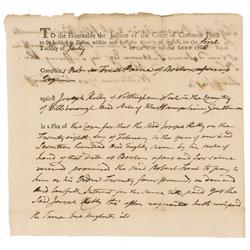 To the Honorable the Justices of the Court of Common Pleas
to be holden at Boston, within and for the County of Suffolk, on the first
Tuesday of July
Complains Robert Treat Paine of Boston aforesaid
Esquire
against Joseph Kelly of Nottingham West in the County
of Hillsborough and State of New Hampshire Gentleman
In a Plea of the Case for that the said Joseph Kelly on the
twenty eighth day of February in the year of our Lord
Seventeen hundred and Eighty seven by his note of
hand of that date at Boston aforesaid for value
received promised the said Robert Treat to pay to
him or his Order Twenty four pounds on demand
and lawful interest for the same till paid yet the
said Joseph Kelly tho' often requested hath not paid
the same but neglects it